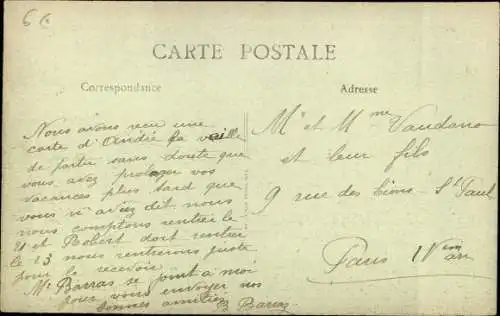 6 €
CARTE POSTALE
Correspondance
Adresse
Nous avons reçu une
carte d'André la veille
de partir sans doute que
vous avez prolonger vos
vacances plus tard que
vous n'aviez dit nous
nous comptons rentrer le
21 et Robert doit rentrer
le 13 nous rentrerons juste
pour le recevoir
Mr Barras se joint à moi
pour vous envoyer nos
bonnes amitiés B Barras
Mr et Mme Vaudano
et leur fils
9 rue des Lions - St Paul
Paris IVem arr